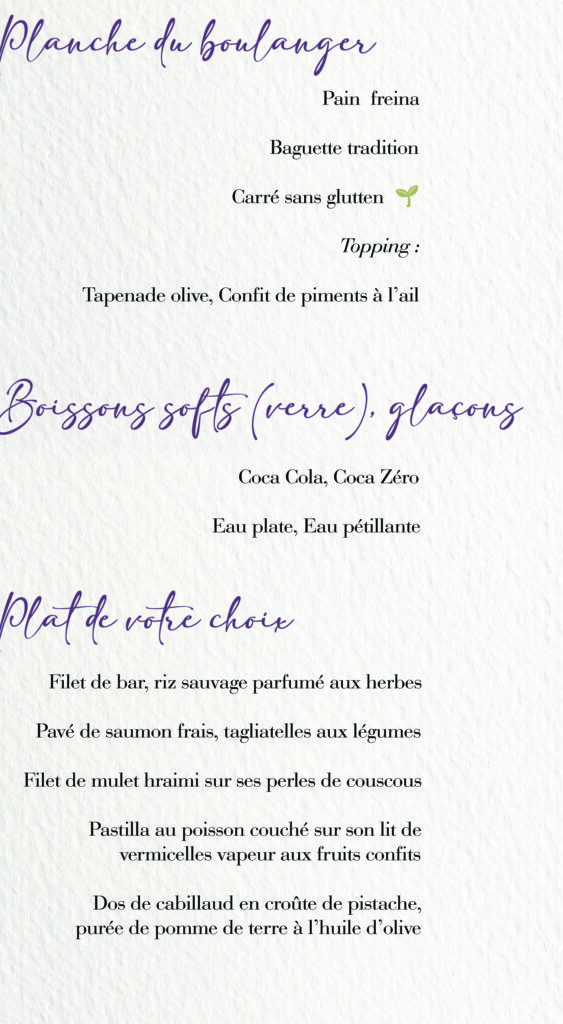 Planche du boulanger
Pain freina
Baguette tradition
Carré sans glutten
Topping :
Tapenade olive, Confit de piments à l'ail
Boissons softs (verre), glaçons
Coca Cola, Coca Zéro
Eau plate, Eau pétillante
Plat de votre choix
Filet de bar, riz sauvage parfumé aux herbes
Pavé de saumon frais, tagliatelles aux légumes
Filet de mulet hraimi sur ses perles de couscous
Pastilla au poisson couché sur son lit de
vermicelles vapeur aux fruits confits
Dos de cabillaud en croûte de pistache,
purée de pomme de terre à l'huile d'olive